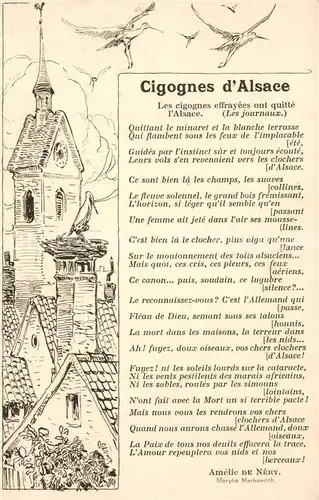 Cigognes d'Alsace
Les cigognes effrayées ont quitté
l'Alsace. (Les journaux.)
Quittant le minaret et la blanche terrasse
Qui flambent sous les feux de l'implacable
[été,
Guidés par l'instinct sûr et toujours écouté,
Leurs vols s'en revenaient vers les clochers
[d'Alsace.
Ce sont bien là les champs, les suaves
[collines,
Le fleuve solennel, le grand bois frémissant,
L'horizon, si léger qu'il semble qu'en
[passant
Une femme ait jeté dans l'air ses mousse-
[lines.
C'est bien là le clocher, plus aigu qu'une
[lance
Sur le moutonnement des toits alsaciens...
Mais quoi, ces cris, ces pleurs, ces feux
[aériens,
Ce canon... puis, soudain, ce lugubre
[silence?...
Le reconnaissez-vous? C'est l'Allemand qui
[passe,
Fléau de Dieu, semant sous ses talons
[honnis,
La mort dans les maisons, la terreur dans
[les nids...
Ah! fuyez, doux oiseaux, vos chers clochers
[d'Alsace!
Fuyez! ni les soleils lourds sur la cataracte,
Ni les vents pestilents des marais africains,
Ni les sables, roulés par les simouns
[lointains,
N'ont fait avec la Mort un si terrible pacte!
Mais nous vous rendrons vos chers
[clochers d'Alsace
Quand nous aurons chassé l'Allemand, doux
[oiseaux,
La Paix de tous nos deuils effacera la trace,
L'Amour repeuplera vos nids et nos
[berceaux!
Amélie de NÉRY.
Marylie Markovitch.